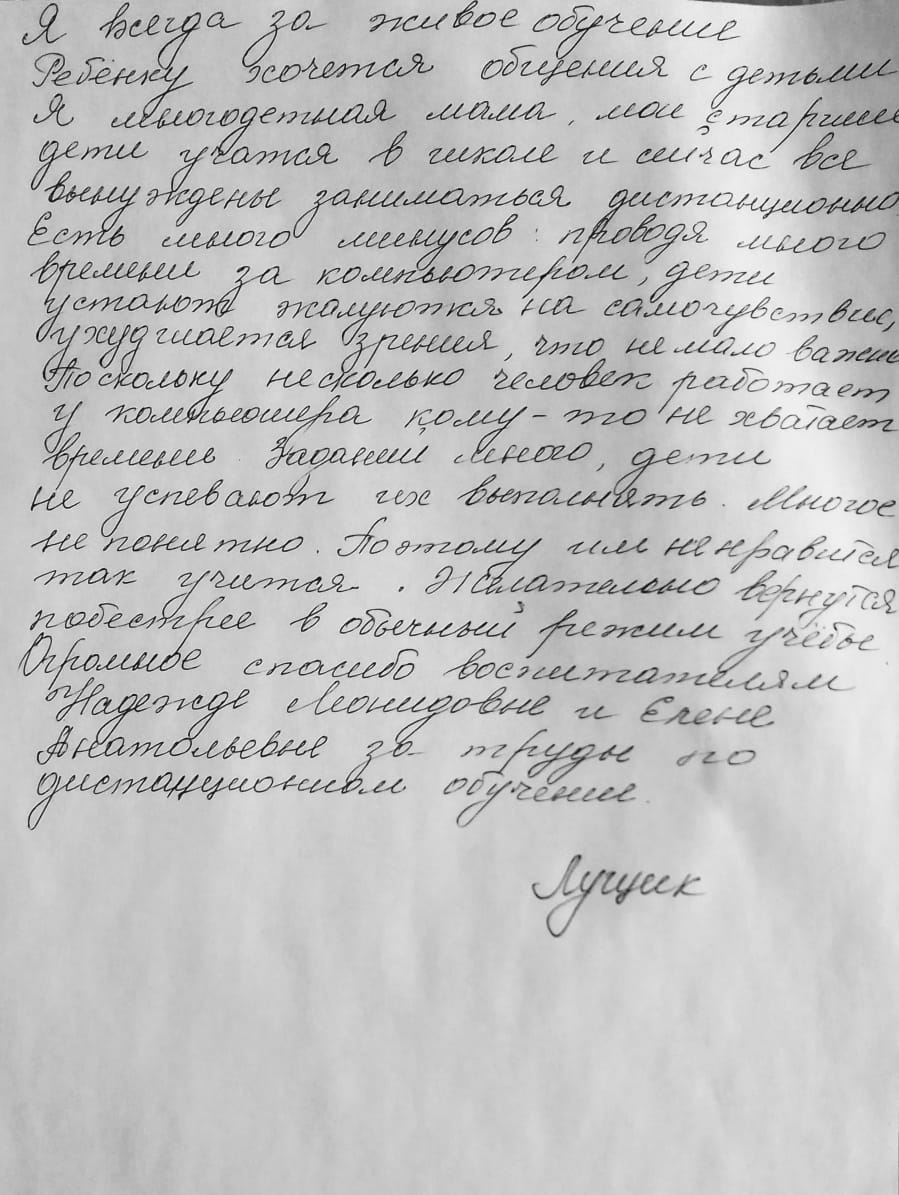 Я всегда за живое обучение
Ребёнку хочется общения с детьми
Я многодетная мама, мои старшие
дети учатся в школе и сейчас все
вынуждены заниматься дистанционно.
Есть много минусов: проводя много
времени за компьютером, дети
устают жалуются на самочувствие,
ухудшается зрения, что не мало важно
Поскольку несколько человек работает
у компьютера кому-то не хватает
времени. Заданий много, дети
не успевают их выполнять. Многое
не понятно. Поэтому им не нравится
так учится. Желательно вернутся
побестрее в обычный режим учёбы
Огромное спасибо воспитателям
Надежде Леонидовне и Елене
Анатольевне за труды по
дистанционном обучении.
Лущик